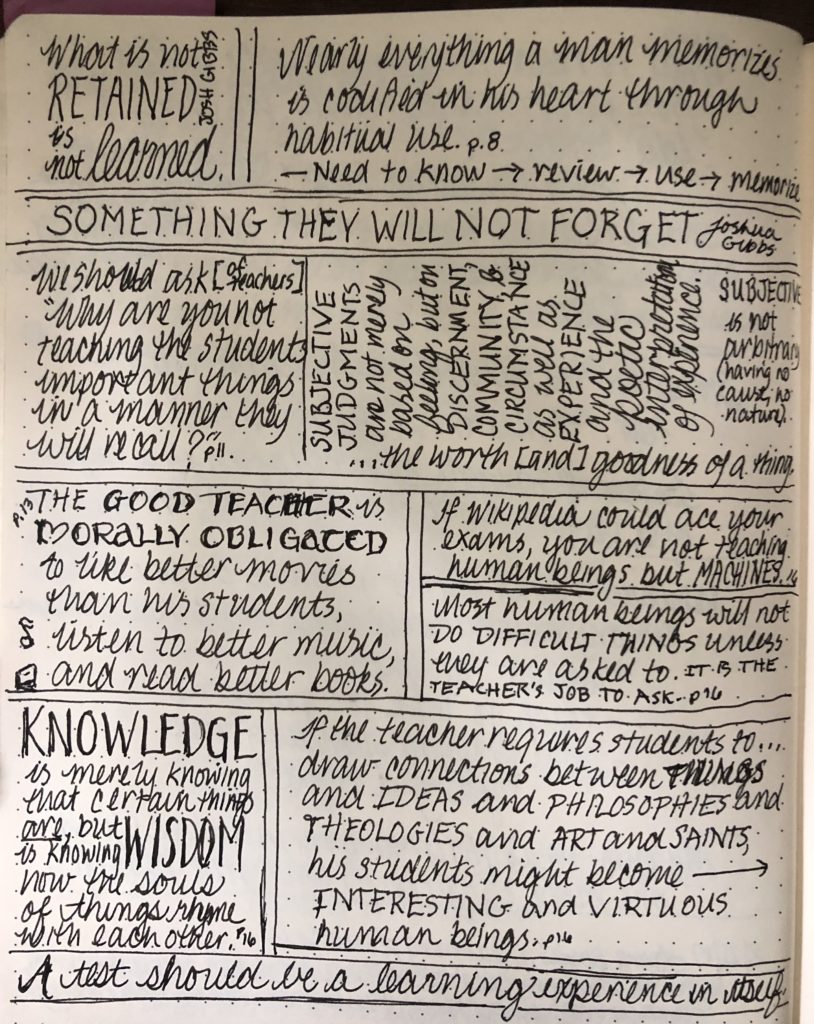 What is not
RETAINED
is
not learned.
JOSH GIBBS
Nearly everything a man memorizes
is codified in his heart through
habitual use. p.8
— Need to know → review → use → memorize
SOMETHING THEY WILL NOT FORGET Joshua
Gibbs
We should ask [of teachers]
"Why are you not
teaching the students
important things
in a manner they
will recall?" p11
SUBJECTIVE
JUDGMENTS
are not merely
based on
feeling, but on
DISCERNMENT,
COMMUNITY, &
CIRCUMSTANCE
as well as
EXPERIENCE
and the
poetic
interpretation
of experience.
SUBJECTIVE
is not
arbitrary
(having no
cause, no
nature).
...the worth [and] goodness of a thing.
p.13
THE GOOD TEACHER is
MORALLY OBLIGATED
to like better movies
than his students,
listen to better music,
and read better books.
If Wikipedia could ace your
exams, you are not teaching
human beings but MACHINES. 16
Most human beings will not
DO DIFFICULT THINGS unless
they are asked to. IT IS THE
TEACHER'S JOB TO ASK. p16
KNOWLEDGE
is merely knowing
that certain things
are, but WISDOM
is knowing
how the souls
of things rhyme
with each other. p16
If the teacher requires students to...
draw connections between THINGS
and IDEAS and PHILOSOPHIES and
THEOLOGIES and ART and SAINTS,
his students might become →
INTERESTING and VIRTUOUS
human beings. p16
A test should be a learning experience in itself.